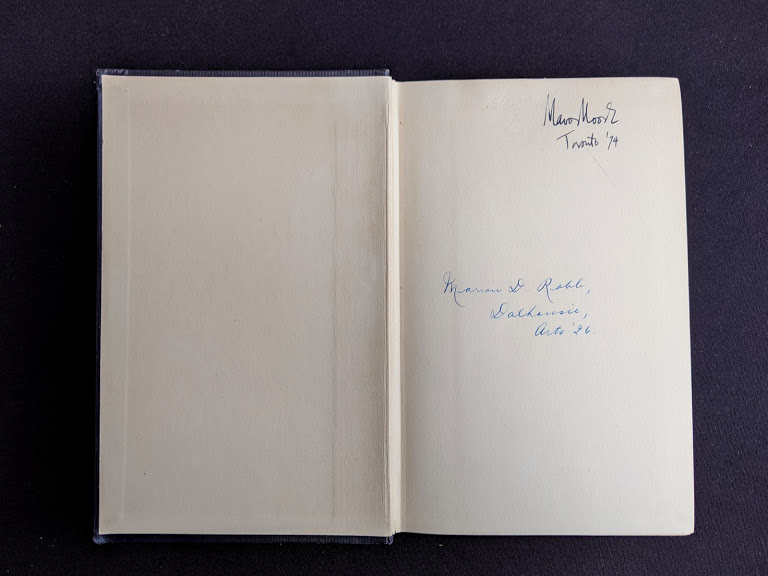 Mavor Moore
Toronto '74
Marion D. Robb,
Dalhousie,
Arts '26.